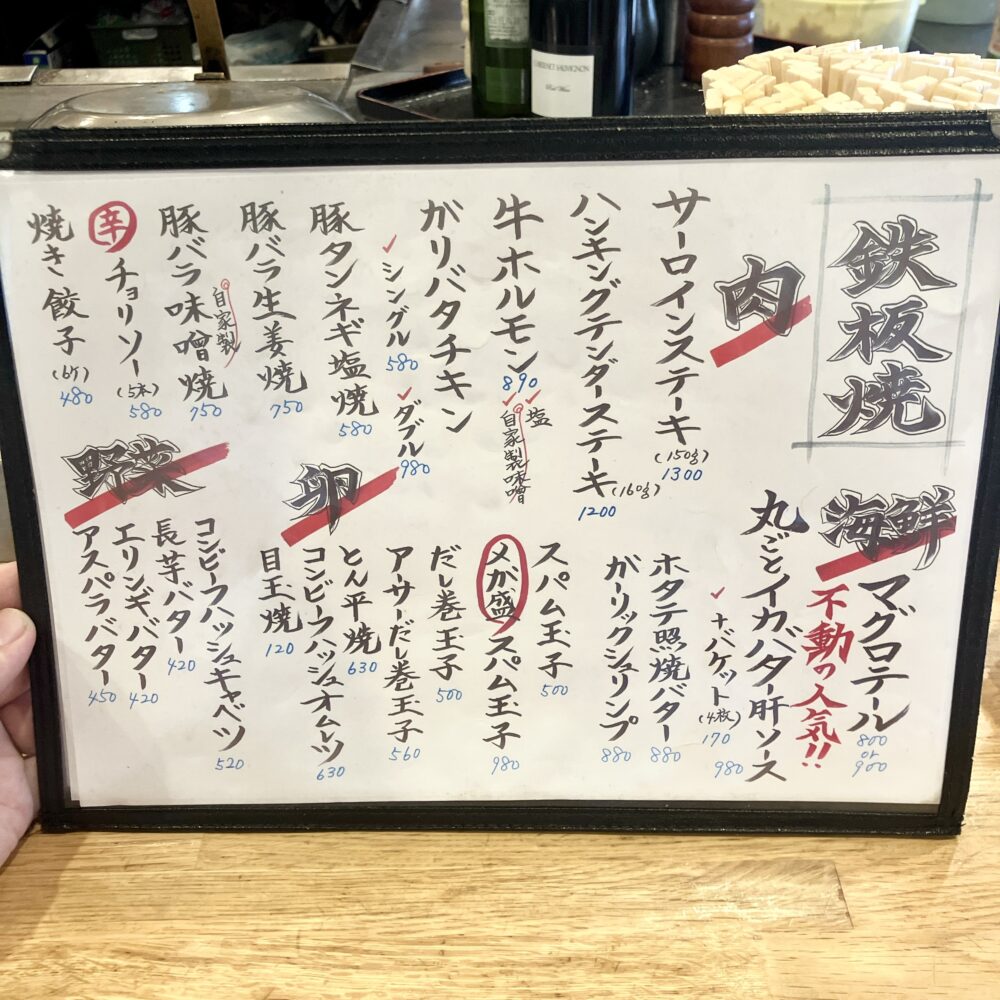 鉄板焼
肉
サーロインステーキ
(150g)
1300
ハンキングテンダーステーキ(160g)
1200
牛ホルモン
890
✓塩
✓自家製味噌
ガリバタチキン
✓シングル
580
✓ダブル
980
豚タンネギ塩焼
580
豚バラ生姜焼
750
豚バラ味噌焼
自家製
750
辛チョリソー
(5本)
580
焼き餃子
(6ケ)
480
海鮮
マグロテール
800
or
900
不動の人気!!
丸ごとイカバター肝ソース
980
✓+バケット(4枚)
170
ホタテ照焼バター
880
ガーリックシュリンプ
880
卵
スパム玉子
500
メガ盛スパム玉子
980
だし巻玉子
500
アーサーだし巻玉子
560
とん平焼
630
コンビーフハッシュオムレツ
630
目玉焼
120
野菜
コンビーフハッシュキャベツ
520
長芋バター
420
エリンギバター
420
アスパラバター
450
CABERNET SAUVIGNON
Red Wine